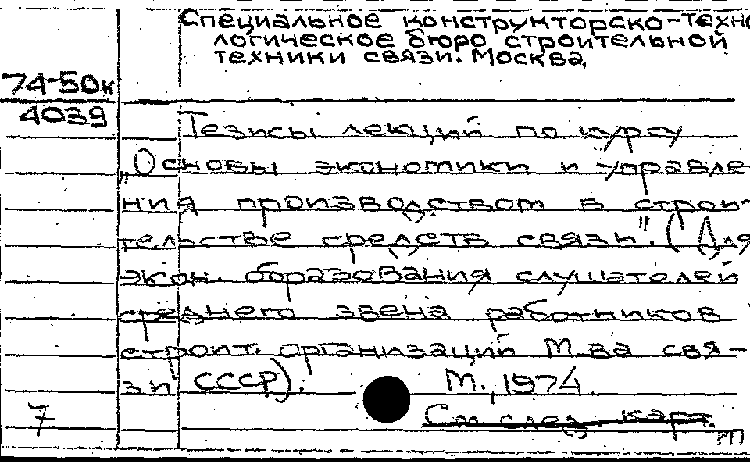 Специальное конструкторско-техно
логическое бюро строительной
техники связи. Москва,
74-50к
4039
Тезисы лекций по курсу
„Основы экономики и управле-
ния производством в строи-
тельстве средств связи". (Для
экон. образования слушателей
среднего звена работников
строит. организаций М-ва свя-
зи СССР).
М., 1974
7
См. след. карт.